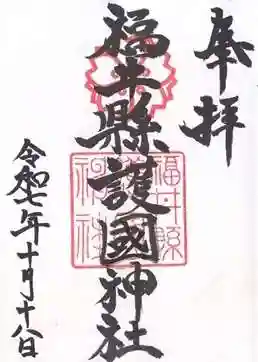 奉拝
福井縣護國神社
福井縣護國神社
令和七年十月十八日